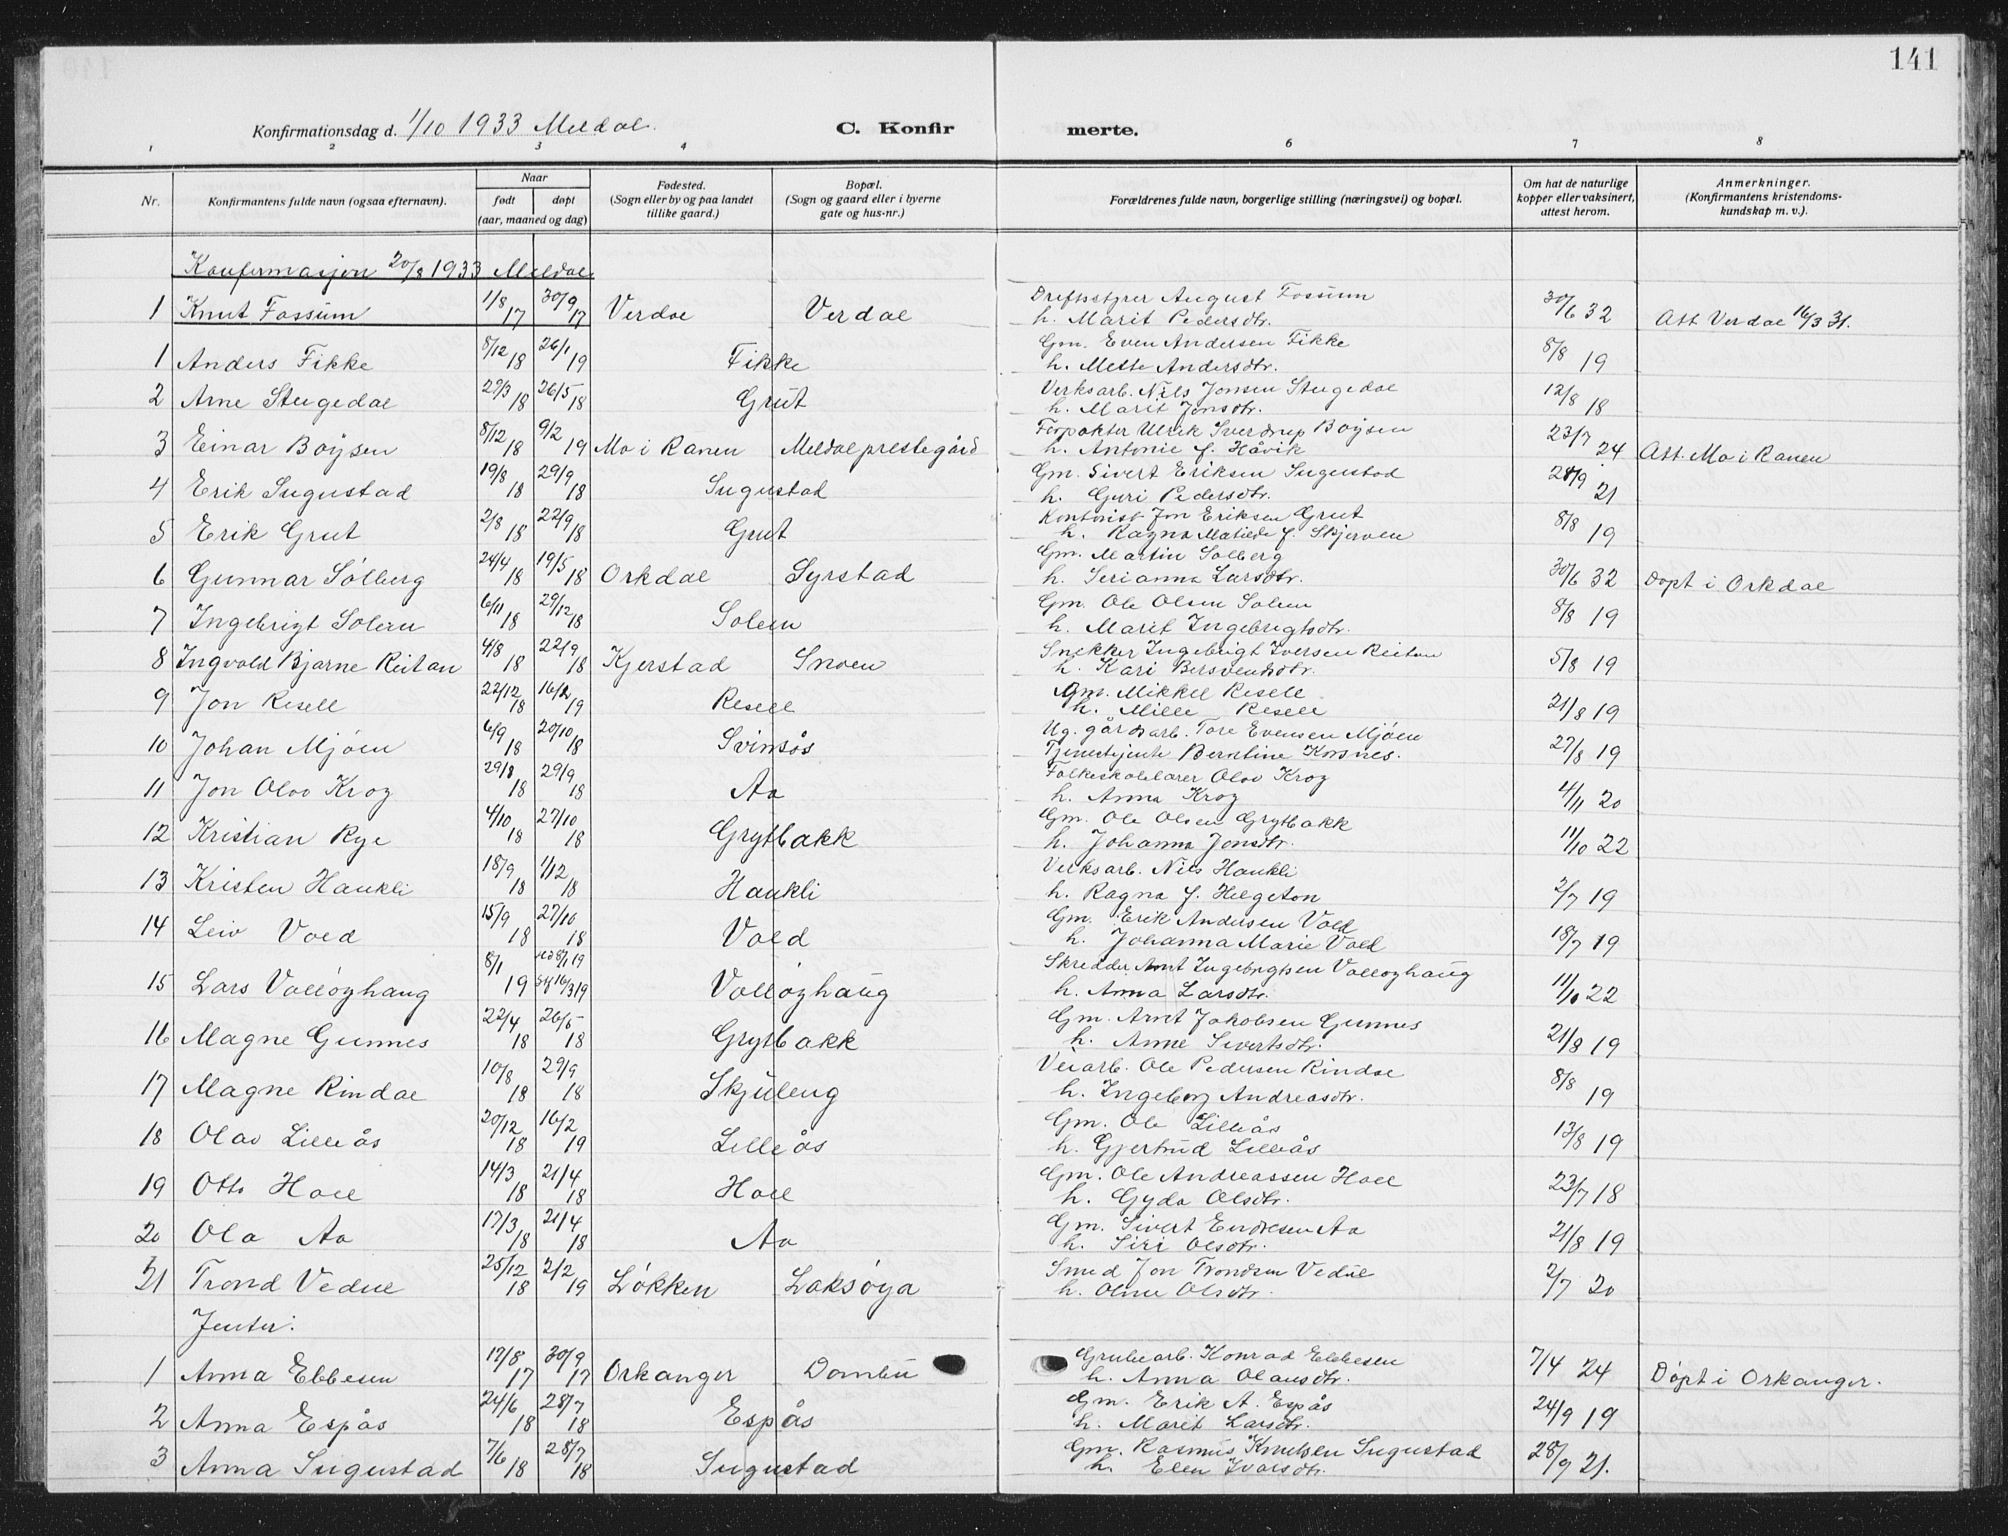 141
Konfirmationsdag d. 1/10 1933 Meldal. C. Konfir merte.
1 2 3 4 6 7 8
Nr. Konfirmantens fulde navn (ogsaa efternavn). Naar født døpt (aar, maaned og dag) Fødested. (Sogn eller by og paa landet tillike gaard.) Bopæl. (Sogn og gaard eller i byerne gate og hus-nr.) Forældrenes fulde navn, borgerlige stilling (næringsvei) og bopæl. Om hat de naturlige kopper eller vaksinert, attest herom. Anmerkninger. (Konfirmantens kristendoms-kundskap m. v.).
Konfirmasjon 20/8 1933 Meldal
1 Knut Fossum 1/8 17 30/9 17 Verdal Verdal Driftsstyrer August Fossum h. Marit Pedersdtr. 30/6 32 Att Verdal 16/3 31.
1 Anders Fikke 8/12 18 26/1 19 Fikke Gm. Even Andersen Fikke h. Mette Andersdtr. 8/8 19
2 Arne Stugedal 29/3 18 26/5 18 Grut Verksarb. Nils Jonsen Stugedal h. Marit Jonsdtr. 12/8 18
3 Einar Boysen 8/12 18 9/2 19 Mo i Ranen Meldal prestegård Forpakter Ulrik Sverdrup Boysen h. Antonie f. Håvik 23/7 24 Att. Mo i Ranen
4 Erik Sugustad 19/8 18 29/9 18 Sugustad Gm. Sivert Eriksen Sugustad h. Guri Pedersdtr. 28/9 21
5 Erik Grut 2/8 18 22/9 18 Grut Kontorist Jon Eriksen Grut h. Ragna Matilde f. Skjerven 8/8 19
6 Gunnar Solberg 24/4 18 19/5 18 Orkdal Syrstad Gm. Martin Solberg h. Serianna Larsdtr. 30/6 32 Døpt i Orkdal
7 Ingebrigt Solem 6/11 18 29/12 18 Solem Gm. Ole Olsen Solem h. Marit Ingebrigtsdtr. 8/8 19
8 Ingvald Bjarne Reitan 4/8 18 22/9 18 Kjerstad Snoen Snekker Ingebrigt Iversen Reitan h. Kari Bersvendsdtr. 5/8 19
9 Jon Resell 22/12 18 16/2 19 Resell Gm. Mikkel Resell h. Mille Resell 21/8 19
10 Johan Mjøen 6/9 18 20/10 18 Svinsås Ug. gårdsarb. Tore Evensen Mjøen Tjenestejente Berntine Korsnes. 27/8 19
11 Jon Olav Krog 29/8 18 29/9 18 Aa Folkeskolelærer Olav Krog h. Anna Krog 4/11 20
12 Kristian Rye 4/10 18 27/10 18 Grytbakk Gm. Ole Olsen Grytbakk h. Johanna Jonsdtr. 11/10 22
13 Kristen Haukli 18/9 18 1/12 18 Haukli Verksarb. Nils Haukli h. Ragna f. Helgeton 2/7 19
14 Leiv Vold 15/9 18 27/10 18 Vold Gm. Erik Andersen Vold h. Johanna Marie Vold 18/7 19
15 Lars Volløyhaug 8/1 19 8/1 19 16/3 19 Volløyhaug Skredder Arnt Ingebrigtsen Volløyhaug h. Anna Larsdtr. 11/10 22
16 Magne Gunnes 22/4 18 26/5 18 Grytbakk Gm. Arnt Jakobsen Gunnes h. Anne Sivertsdtr. 21/8 19
17 Magne Rindal 10/8 18 29/9 18 Skjuleng Veiarb. Ole Pedersen Rindal h. Ingeborg Andreasdtr. 8/8 19
18 Olav Lilleås 20/12 18 16/2 19 Lilleås Gm. Ole Lilleås h. Gjertrud Lilleås 13/8 19
19 Otto Hoel 14/3 18 21/4 18 Hoel Gm. Ole Andreassen Hoel h. Gyda Olsdtr. 23/7 18
20 Ola Aa 17/3 18 21/4 18 Aa Gm. Sivert Endresen Aa h. Siri Olsdtr. 21/8 19
21 Trond Vedul 25/12 18 2/2 19 Løkken Laksøya Smed Jon Trondsen Vedul h. Oline Olsdtr. 2/7 20
Jenter:
1 Anna Ebbesen 17/8 17 30/9 17 Orkanger Dombu Grubearb. Konrad Ebbesen h. Anna Olausdtr. 7/4 24 Døpt i Orkanger.
2 Anna Espås 24/6 18 28/7 18 Espås Gm. Erik A. Espås h. Marit Larsdtr. 24/9 19
3 Anna Sugustad 7/6 18 28/7 18 Sugustad Gm. Rasmus Knutsen Sugustad h. Elen Ivarsdtr. 28/9 21.